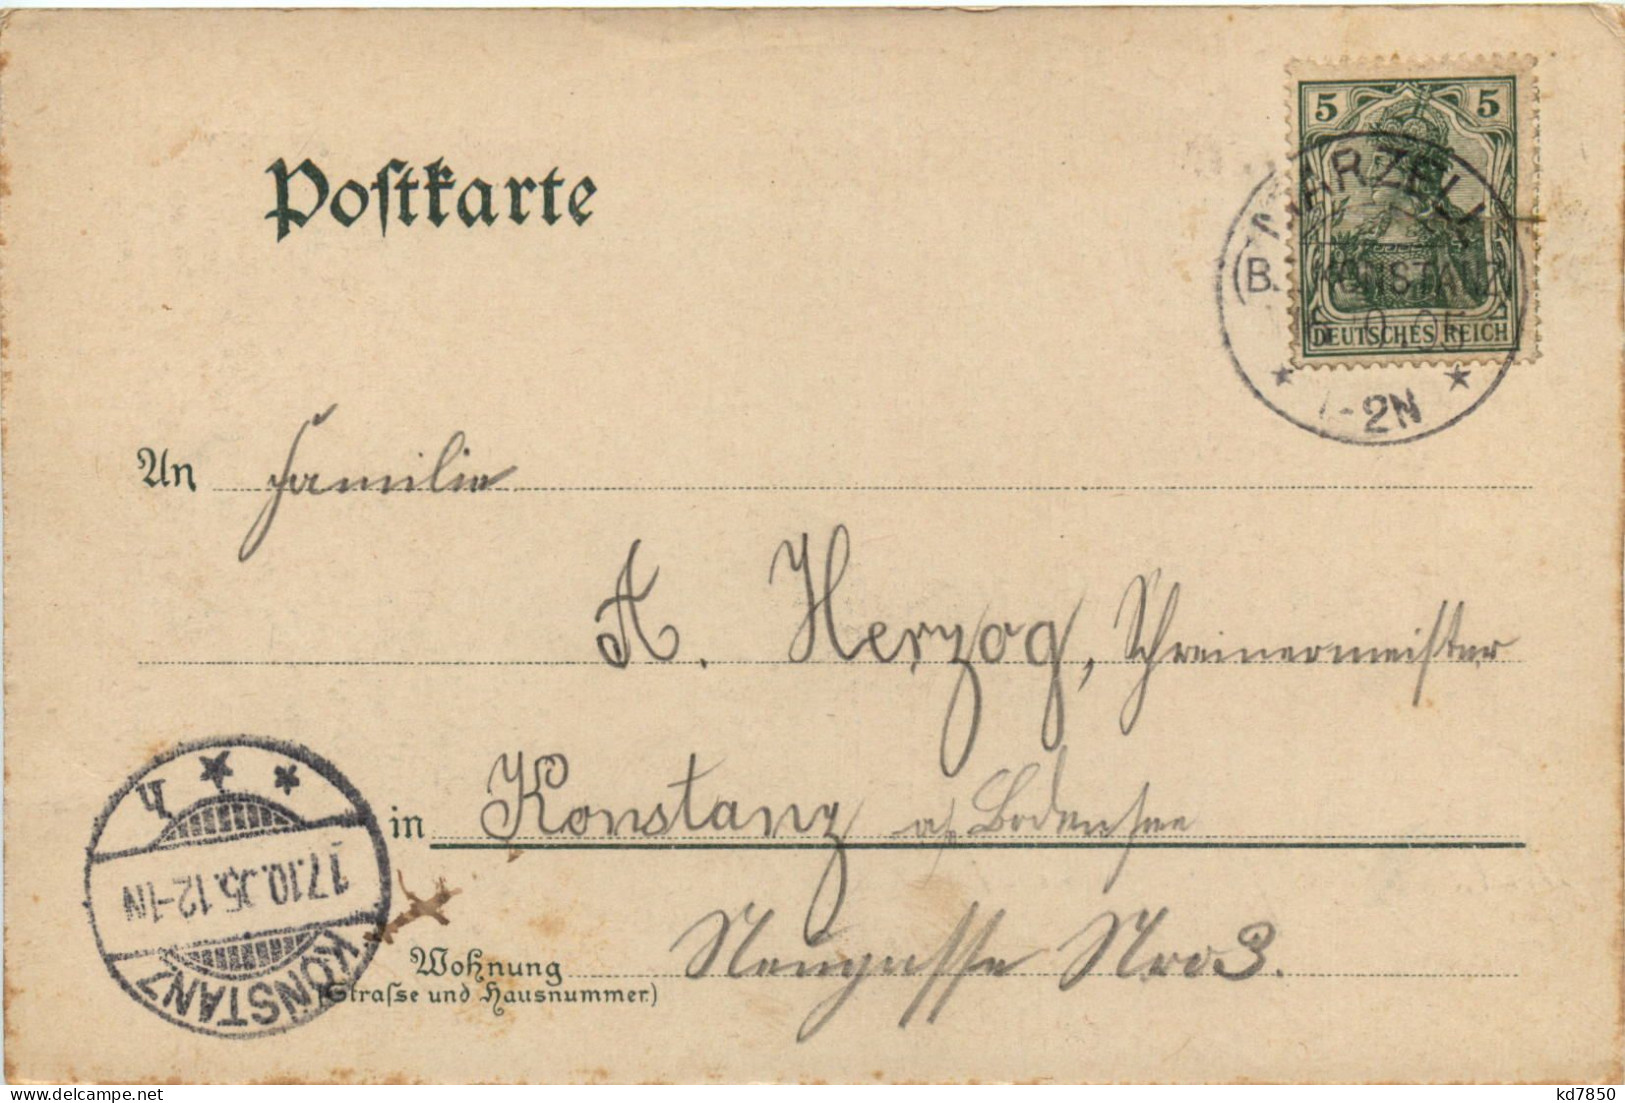 Postkarte
5 5
DEUTSCHES REICH
MARZELL
(B. KONSTANZ)
-2N
An Familie
A. Herzog, Schreinermeister
in Konstanz a/ Bodensee
Wohnung Neugasse Nro 3.
(Strasse und Hausnummer)
KONSTANZ
17.10.05.12-1N
kd7850